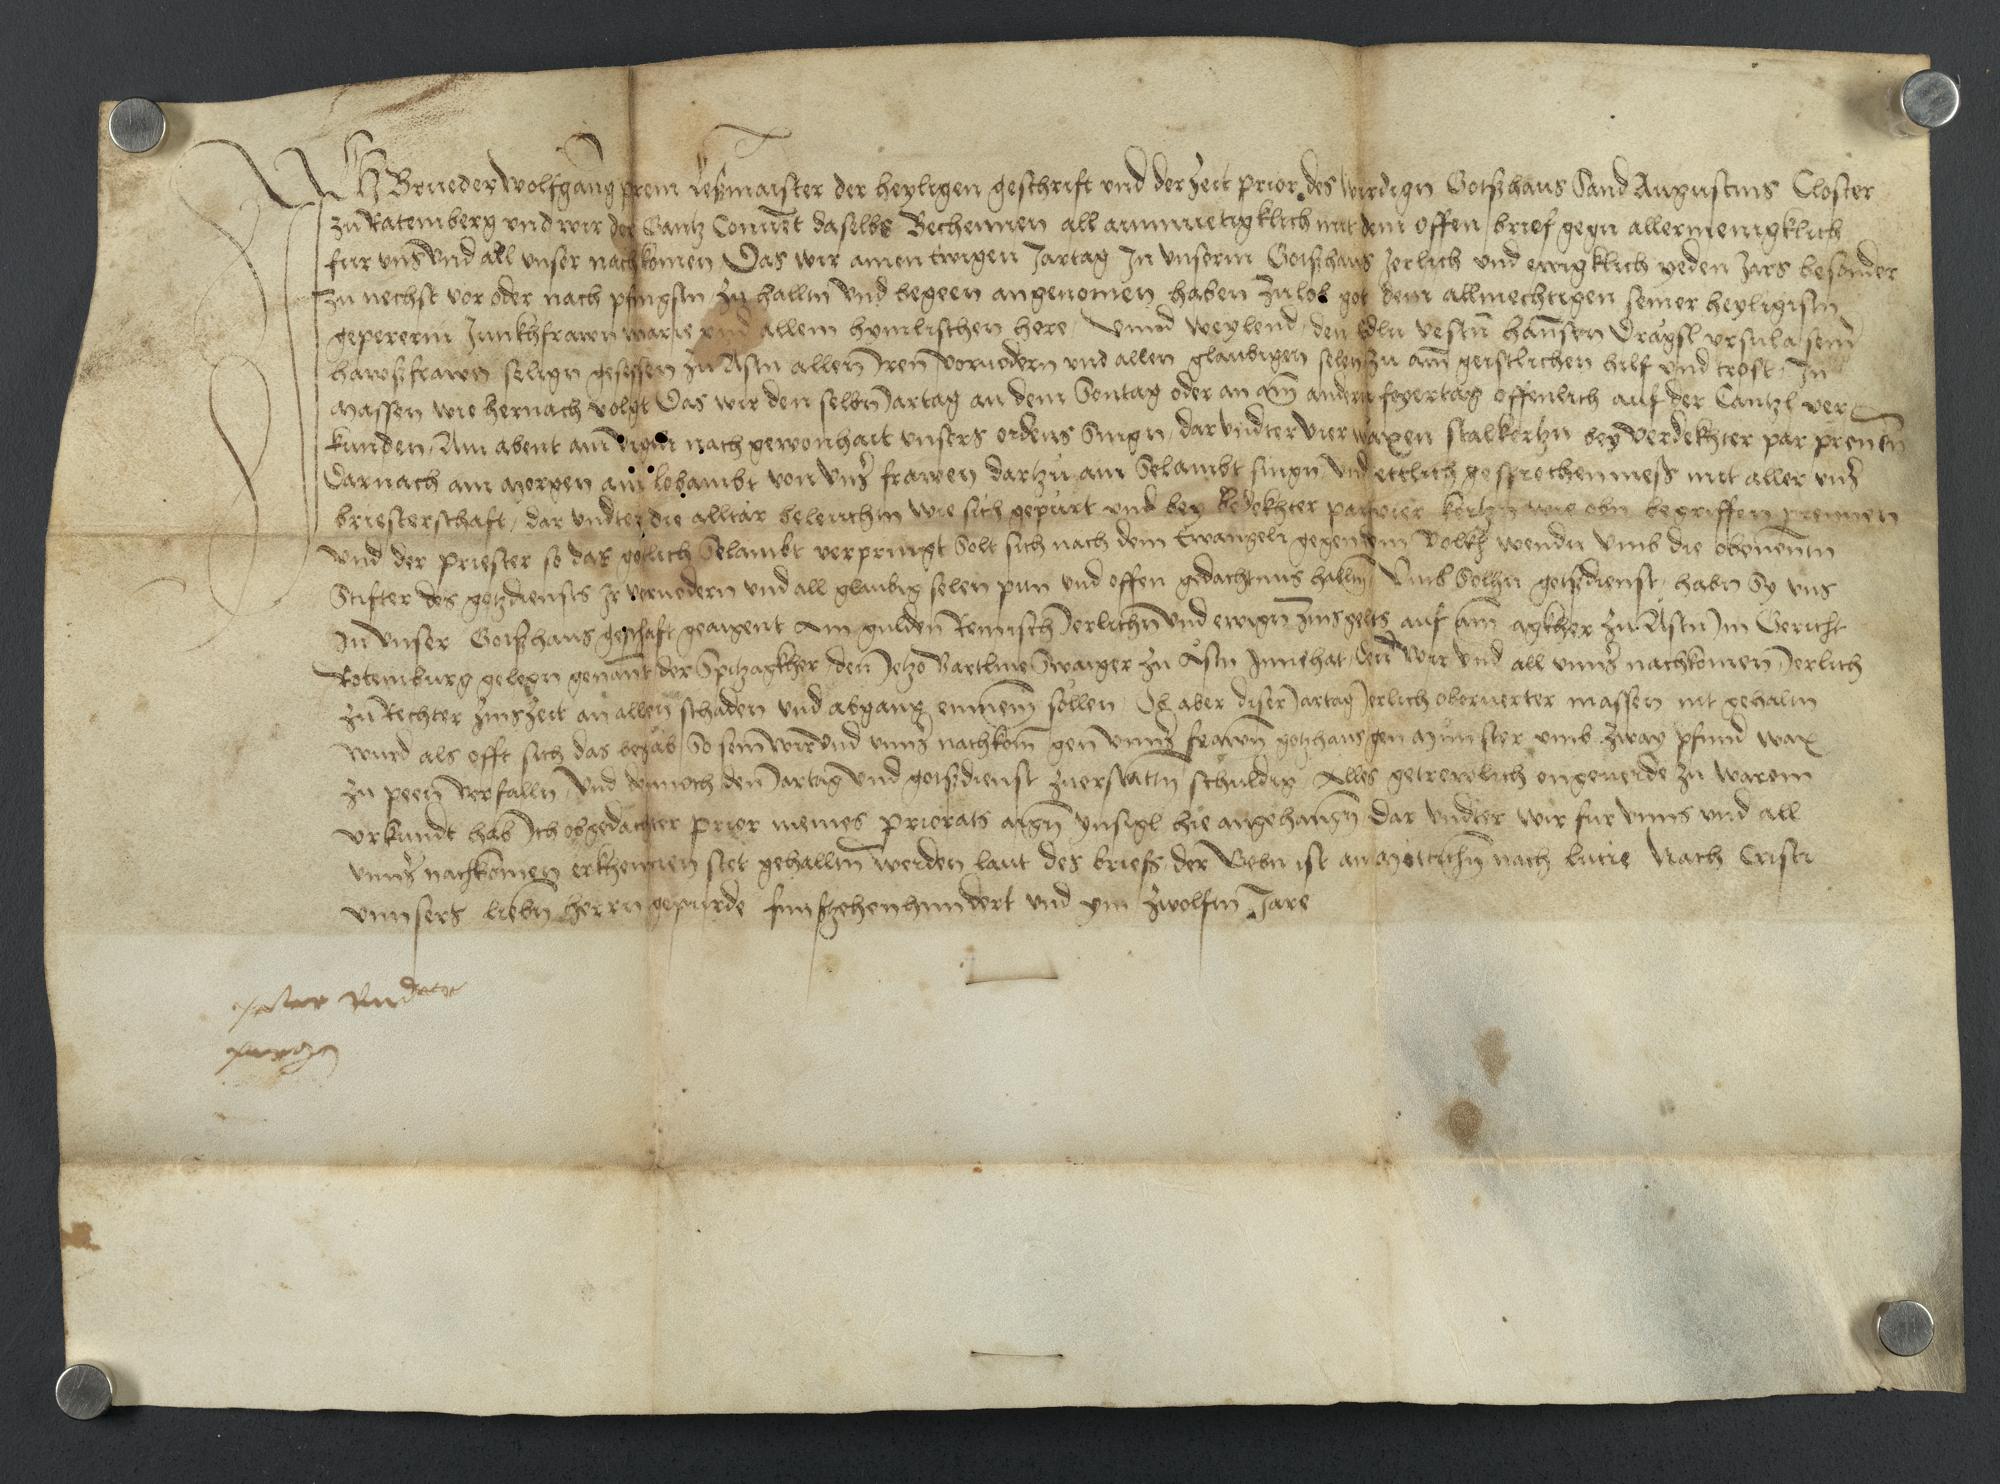 Ich Brueder Wolfgang prem Leßmaister der heyligen geschrift vnd der Zeit prior des wirdign Gotzhaus Sand Augustins Closter
zu Ratemberg vnd wir der Gantz Conuent daselbs Bechennen all ainmuetigklich mit dem offen brief gegn allermenigklich
fur vnns vnd all vnser nachkomen Das wir ainen Ewigen Jartag In vnserm Gotzhaus Jerlich vnd ewigklich yeden Jars besonder
zu nechst vor oder nach pfingstn zu halltn vnd begeen angenomen haben zu lob got dem allmechtigen seiner heyligistn
gepererin Junkhfrawn marie vnd allem hymlischen here Vnnd weylend den Edln vestn hannsen Drägsl vrsula sein
hawsfrawen seligen gesessen zu Astn allen Iren voruodern vnd allen glaubigen selen zu ainem geistlichen hilf vnd trost In
massen wie hernach volgt Das wir den selbn Jartag an dem Sontag oder an ainem andern feyertag offenlich auf der Cantzl ver
kunden Am abent ain vigili nach gewonhait vnsers ordens Singn dar vndter vier waxen stalkertzn bey verdekhter par prenen
Darnach am morgen ain lobambt von vnser frawen dartzu ain Selambt singn vnd ettlich gesprochenmess mit aller vnser
briesterschaft dar vndter die alltar beleuchtn wie sich gepurt vnd bey bedekhter par vier kertzn wie obn begriffen prennen
vnd der priester so das gotlich Selambt verpringt Solt sich nach dem Ewangeli gegen dem volkh wenden vmb die obenentn
Stifter des gotzdiensts Ir voruodern vnd all glaubig selen pitn vnd offen gedachtnus halltn Vmb Solhn gotzdienst habn Sy vns
In vnser Gotzhaus geschaft geaigent Ain gulden Reinisch Jerlichn vnd ewign Zinsgelts auf ainem agkher zu Astn Im Gericht
Rotemburg gelegn genannt der Spitzagkher den Jetzo Bartlme Swaiger zu Astn Innehat den wir vnd all vnnser nachkomen Jerlich
zu Rechter Zinszeit an allen schaden vnd abgang einnemen sollen Ob aber diser Jartag Jerlich oberuerter massen nit gehaltn
wurd als offt sich das begab So sein wir vnd vnnser nachkomen gen vnnser frawn gotzhaus gen Munster vmb zway pfund wax
zu peen verfalln Vnd dennoch den Jartag vnd gotzdienst zuerstattn schuldig Alles getrewlich ongeuerde zu warem
vrkundt hab Ich obgedachter prior meines priorats aign Innsigl hie angehangn dar vndter wir fur vnns vnd all
vnnser nachkomen erkhennen stet gehalltn werden laut des briefs der Gebn ist an Mittichn nach lucie Nach Cristi
vnnsers liebn herrn gepurde funfzehenhundert vnd ym zwolftn Jare